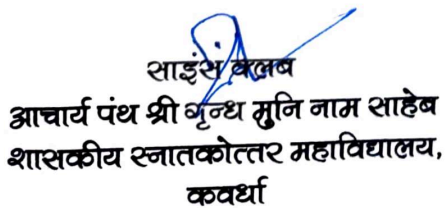 साइंस क्लब
आचार्य पंथ श्री गृन्ध मुनि नाम साहेब
शासकीय स्नातकोत्तर महाविद्यालय,
कवर्धा